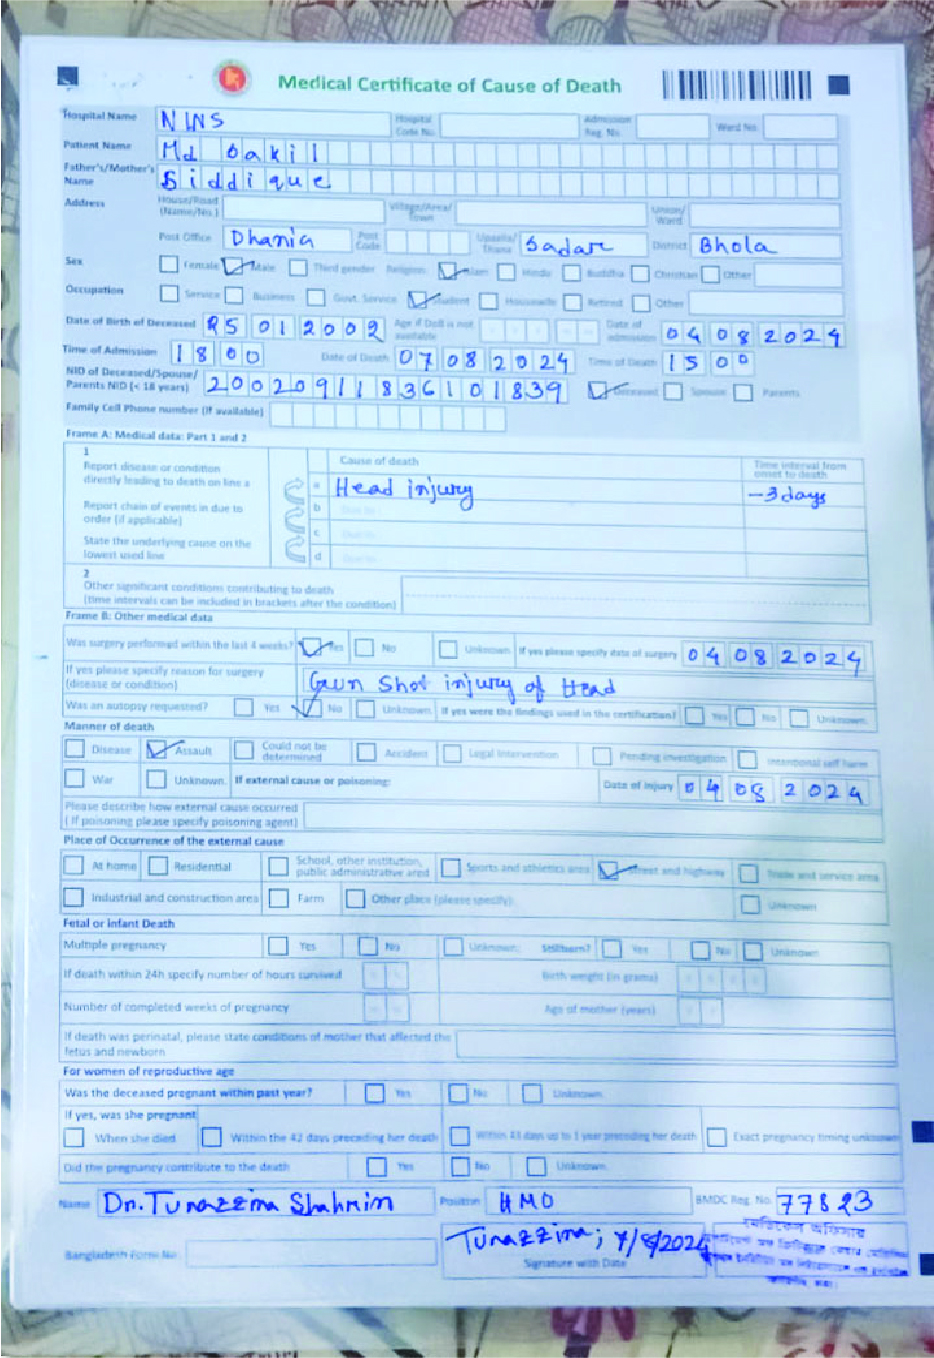 Medical Certificate of Cause of Death
Hospital Name NINS Hospital Code No. Admission Reg. No. Ward No.
Patient Name Md Sakil
Father's/Mother's Name Siddique
Address House/Road (Name/No.) Village/Area/Town Union/Ward
Post Office Dhania Post Code Upazila/Thana Sadar District Bhola
Sex Female Male Third gender Religion Islam Hindu Buddha Christian Other
Occupation Service Business Govt. Service Student Housewife Retired Other
Date of Birth of Deceased 05 01 2002 Age if DoB is not available Date of admission 04 08 2024
Time of Admission 18 00 Date of Death 07 08 2024 Time of Death 15 00
NID of Deceased/Spouse/
Parents NID (< 18 years) 20020911836101839 Deceased Spouse Parents
Family Cell Phone number (if available)
Frame A: Medical data: Part 1 and 2
1 Cause of death Time interval from onset to death
Report disease or condition
directly leading to death on line a a Head injury ~3 days
Report chain of events in due to b Due to:
order (if applicable)
State the underlying cause on the c Due to:
lowest used line d Due to:
2
Other significant conditions contributing to death
(time intervals can be included in brackets after the condition)
Frame B: Other medical data
Was surgery performed within the last 4 weeks? Yes No Unknown If yes please specify date of surgery 04 08 2024
If yes please specify reason for surgery
(disease or condition) Gun Shot injury of Head
Was an autopsy requested? Yes No Unknown If yes were the findings used in the certification? Yes No Unknown
Manner of death
Disease Assault Could not be determined Accident Legal intervention Pending investigation Intentional self harm
War Unknown If external cause or poisoning: Date of injury 04 08 2024
Please describe how external cause occurred
(If poisoning please specify poisoning agent)
Place of Occurrence of the external cause
At home Residential School, other institution, public administrative area Sports and athletics area Street and highway Trade and service area
Industrial and construction area Farm Other place (please specify): Unknown
Fetal or infant Death
Multiple pregnancy Yes No Unknown Stillborn? Yes No Unknown
If death within 24h specify number of hours survived Birth weight (in grams)
Number of completed weeks of pregnancy Age of mother (years)
If death was perinatal, please state conditions of mother that affected the
fetus and newborn
For women of reproductive age
Was the deceased pregnant within past year? Yes No Unknown
If yes, was she pregnant
When she died Within the 42 days preceding her death Within 43 days up to 1 year preceding her death Exact pregnancy timing unknown
Did the pregnancy contribute to the death Yes No Unknown
Name Dr. Tunazzina Shahrin Position HMO BMDC Reg. No. 77823
Tunazzina; 7/8/2024 মেডিকেল অফিসার
Bangladesh Form No Signature with Date